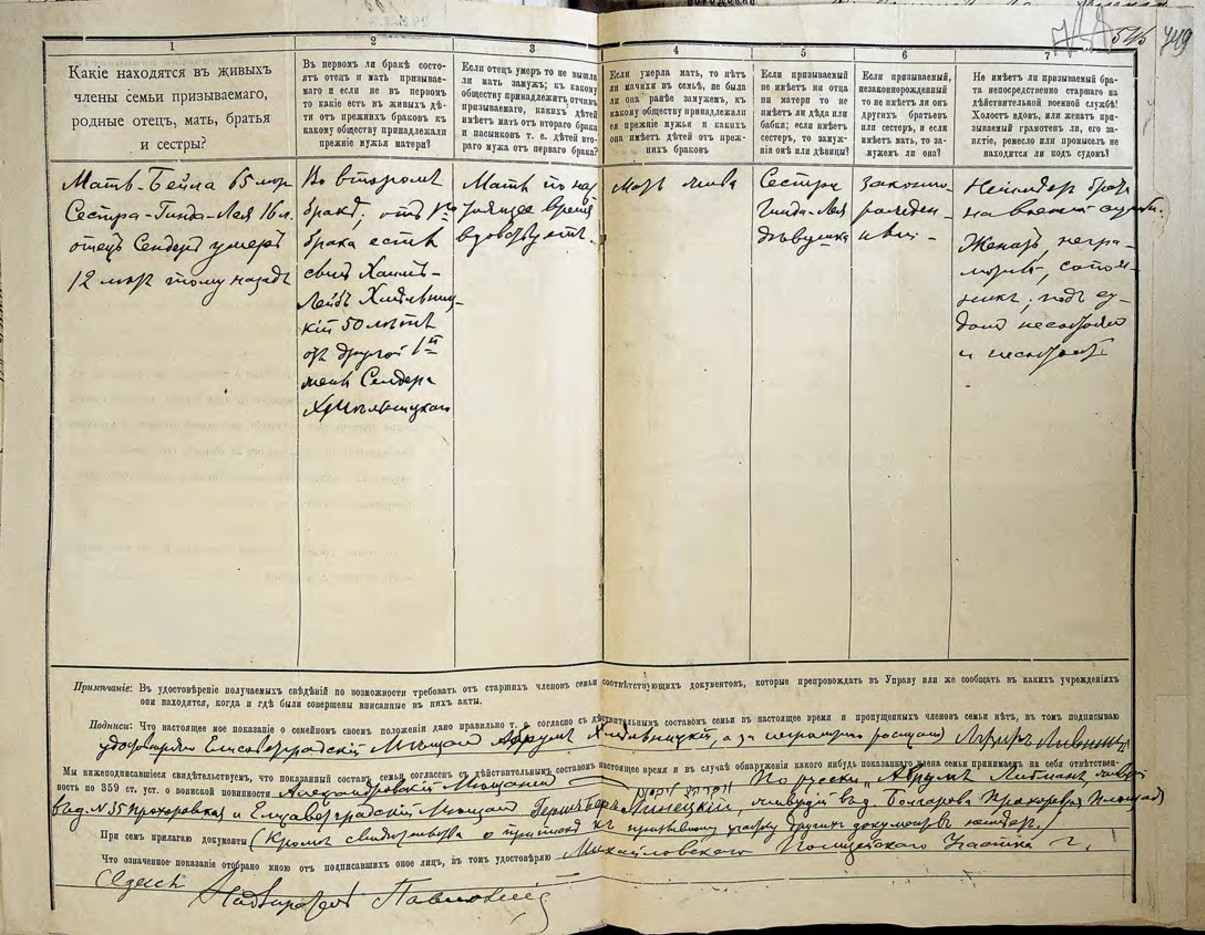 545 749
1
Какіе находятся въ живыхъ
члены семьи призываемаго,
родные отецъ, мать, братья
и сестры?
2
Въ первомъ ли бракѣ состо-
ятъ отецъ и мать призывае-
маго и если не въ первомъ
то какіе есть въ живыхъ дѣ-
ти отъ прежнихъ браковъ къ
какому обществу принадлежали
прежніе мужья матери?
3
Если отецъ умеръ то не вышла
ли мать замужъ; къ какому
обществу принадлежитъ отчимъ
призываемаго, какихъ дѣтей
имѣетъ мать отъ втораго брака
и пасынковъ т. е. дѣтей вто-
раго мужа отъ перваго брака?
4
Если умерла мать, то нѣтъ
ли мачихи въ семьѣ, не была
ли она ранѣе замужемъ, къ
какому обществу принадлежали
ея прежніе мужья и какихъ
она имѣетъ дѣтей отъ преж-
нихъ браковъ
5
Если призываемый
не имѣетъ ни отца
ни матери то не
имѣетъ ли дѣда или
бабки; если имѣетъ
сестеръ, то замуж-
нія онѣ или дѣвицы?
6
Если призываемый,
незаконнорожденный
то не имѣетъ ли онъ
другихъ братьевъ
или сестеръ, и если
имѣетъ мать, то за-
мужемъ ли она?
7
Не имѣетъ ли призываемый бра-
та непосредственно старшаго на
дѣйствительной военной службѣ!
Холостъ вдовъ, или женатъ при-
зываемый грамотенъ ли, его за-
нятіе, ремесло или промыселъ не
находится ли подъ судомъ?
Мать-Бейла 65 лѣтъ
Сестра-Гинда-Лея 16 л.
отецъ Сендеръ умеръ
12 лѣтъ тому назадъ
Во второмъ
бракѣ; отъ 1го
брака есть
сынъ Хаимъ-
Лейбъ Хмѣльниц-
кій 50 лѣтъ
отъ другой 1й
жены Сендера
Хмѣльницкаго
Мать по нас-
тоящее время
вдовствуетъ.
Мать жива
Сестра
Гинда-Лея
дѣвушка
Законно-
рожден-
ный -
Неимѣетъ брата
на военной службѣ.
Женатъ, негра-
мотный, сапож-
никъ; подъ су-
домъ несостоялъ
и несостоитъ
Примѣчаніе: Въ удостовѣреніе получаемыхъ свѣдѣній по возможности требовать отъ старшихъ членовъ семьи соотвѣтствующихъ документовъ, которые препровождать въ Управу или же сообщать въ какихъ учрежденіяхъ
они находятся, когда и гдѣ были совершены вписанные въ нихъ акты.
Подписи: Что настоящее мое показаніе о семейномъ своемъ положеніи дано правильно т. е. согласно съ дѣйствительнымъ составомъ семьи въ настоящее время и пропущенныхъ членовъ семьи нѣтъ, въ томъ подписываю
удостовѣряю Елисаветградскій Мѣщанинъ Абрумъ Хмѣльницкій, а за неграмотнаго росписался
Мы нижеподписавшіеся свидѣтельствуемъ, что показанный составъ семьи согласенъ съ дѣйствительнымъ составомъ настоящее время и въ случаѣ обнаруженія какого нибудь показаннаго члена семьи принимаемъ на себя отвѣтствен-
ность по 359 ст. уст. о воинской повинности Александровскій Мѣщанинъ По русски "Абрумъ Литманъ, живущій
въ д. №35 Прохоровская и Елисаветградскій Мѣщанинъ Гершъ Беръ Линецкій, живущій въ д. Бондарева Прохоровск Площадь)
При семъ прилагаю документы (Кромѣ свидѣтельства о припискѣ къ призывному участку другихъ документовъ неимѣетъ.
Что означенное показаніе отобрано мною отъ подписавшихъ оное лицъ, въ томъ удостовѣряю Михайловскаго Полицейскаго Участка г.
Одессы Надзиратель